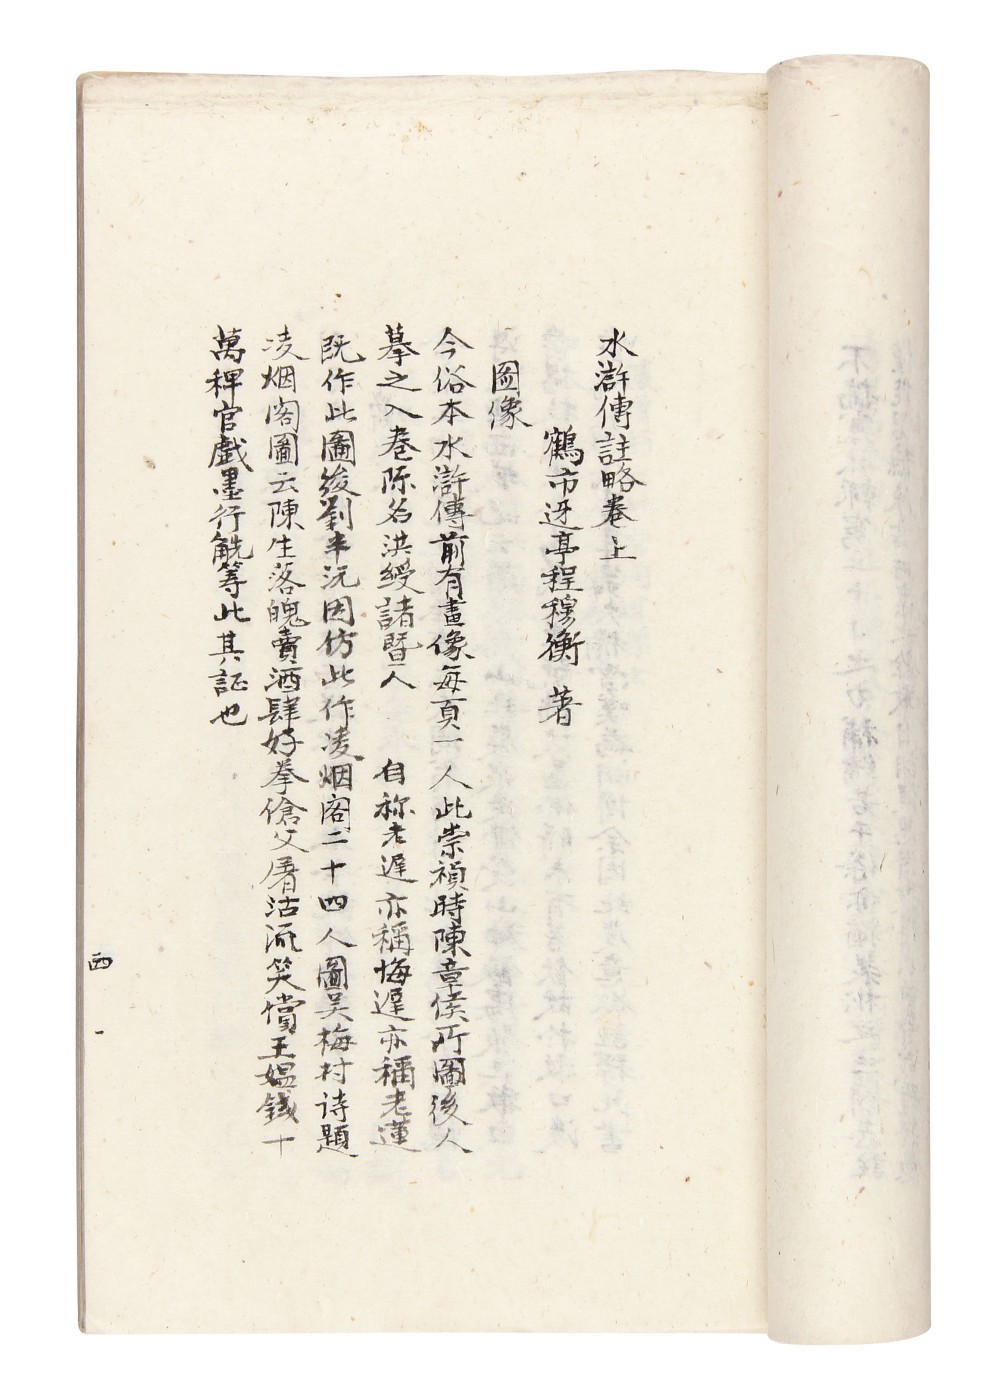 水滸傳註略卷上
鶴市迓亭程穆衡 著
圖像
今俗本水滸傳前有畫像每頁一人此崇禎時陳章侯所圖後人
摹之入卷陈名洪綬諸暨人 自称老遲亦稱悔遲亦稱老蓮
既作此圖後劉半沅因仿此作凌烟阁二十四人圖吴梅村诗題
凌烟阁圖云陳生落魄賣酒肆好拳傖父屠沽流笑償王媼錢十
萬稗官戯墨行觥筹此其証也
四
一